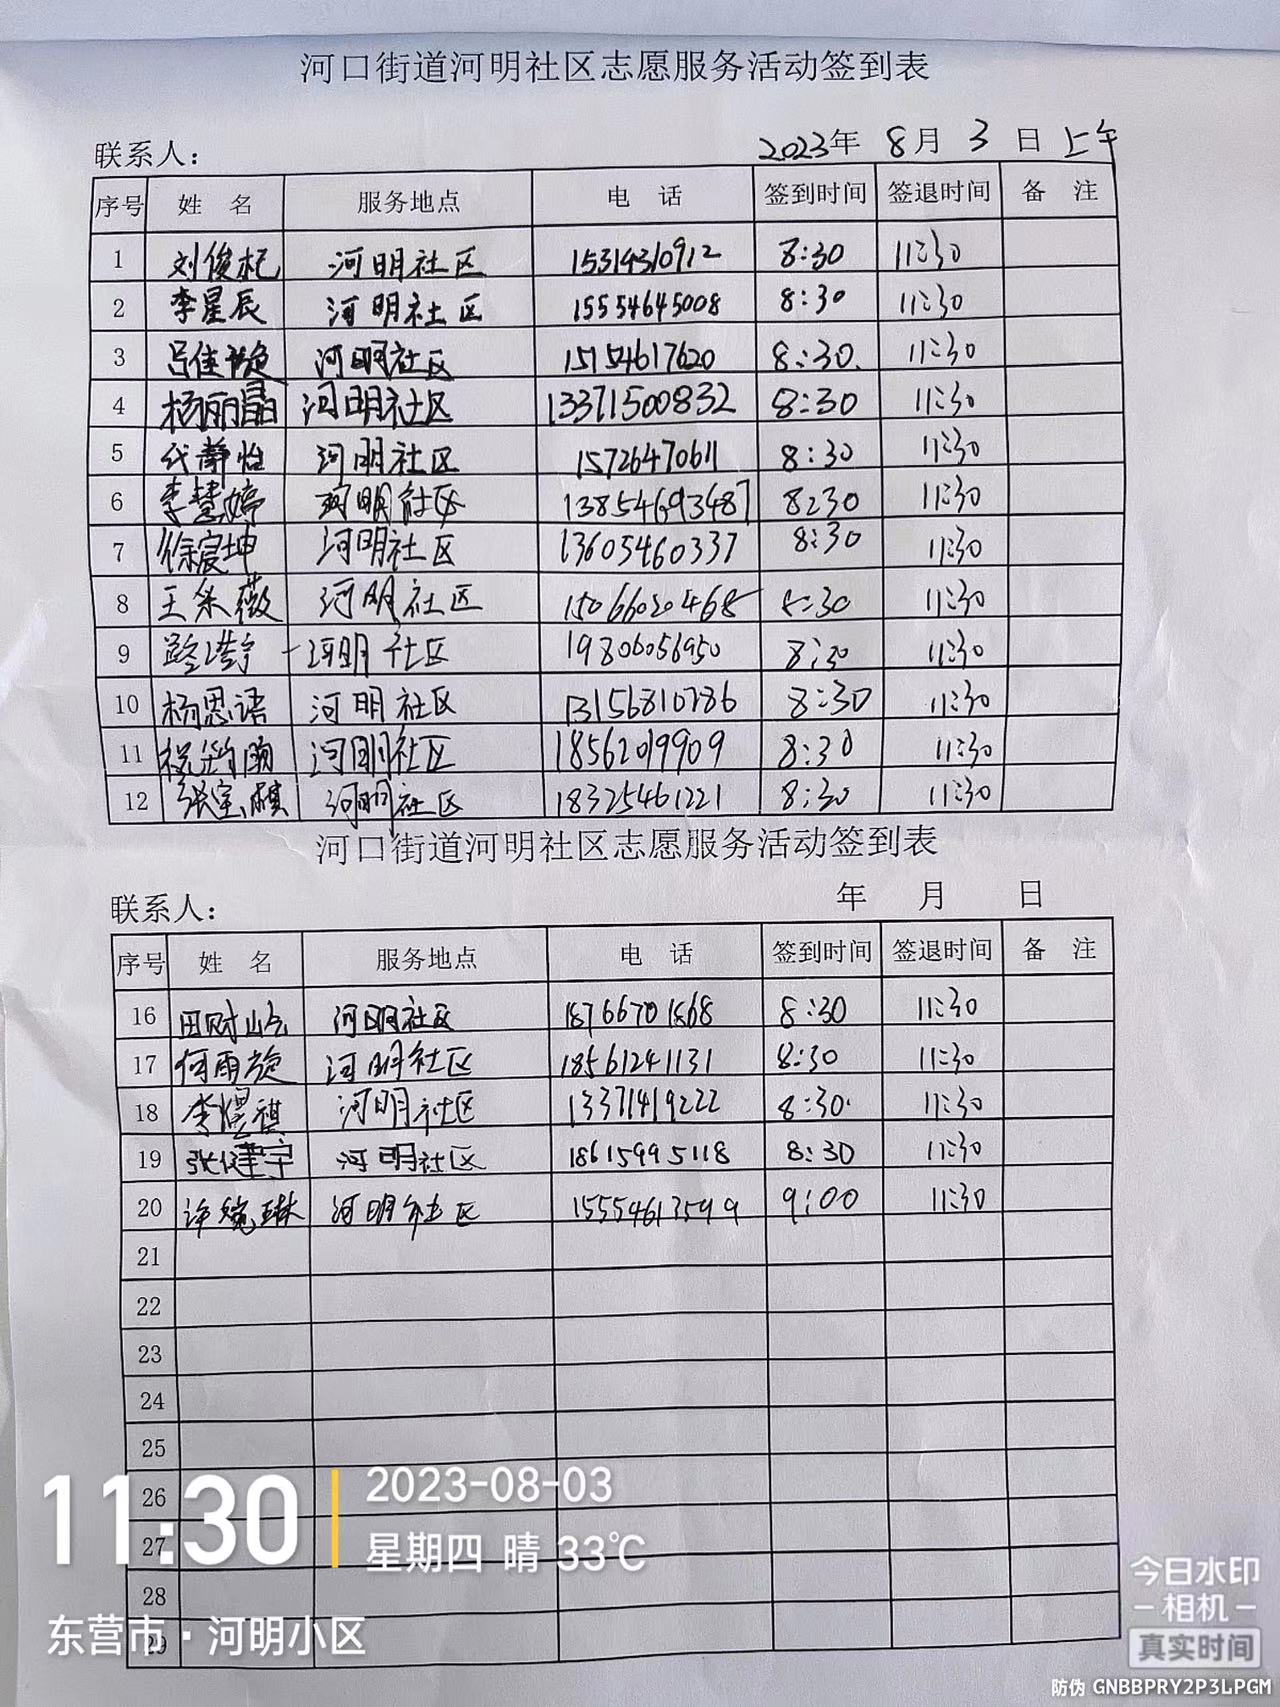 河口街道河明社区志愿服务活动签到表
联系人： 2023年 8月 3日 上午
序号 姓 名 服务地点 电 话 签到时间 签退时间 备 注
1 刘俊杞 河明社区 15314310912 8:30 11:30
2 李星辰 河明社区 15554645008 8:30 11:30
3 吕佳 河明社区 15154617620 8:30. 11:30
4 杨丽晶 河明社区 13371500832 8:30 11:30
5 代静怡 河明社区 15726470611 8:30 11:30
6 李慧婷 河明社区 13854693487 8:30 11:30
7 徐宸坤 河明社区 13605460337 8:30 11:30
8 王采薇 河明社区 15066020468 8:30 11:30
9 河明社区 19806056950 8:30 11:30
10 杨思语 河明社区 13156810786 8:30 11:30
11 河明社区 18562019909 8:30 11:30
12 张宝麒 河明社区 18325461221 8:30 11:30
河口街道河明社区志愿服务活动签到表
联系人： 年 月 日
序号 姓 名 服务地点 电 话 签到时间 签退时间 备 注
16 河明社区 18766701868 8:30 11:30
17 何雨旋 河明社区 18561241131 8:30 11:30
18 李煜祺 河明社区 13371419222 8:30. 11:30
19 张健宇 河明社区 18615995118 8:30 11:30
20 许婉琳 河明社区 15554613599 9:00 11:30
21
22
23
24
25
26
27
28
29
11:30
2023-08-03
星期四 晴 33℃
东营市·河明小区
今日水印
相机
真实时间
防伪 GNBBPRY2P3LPGM